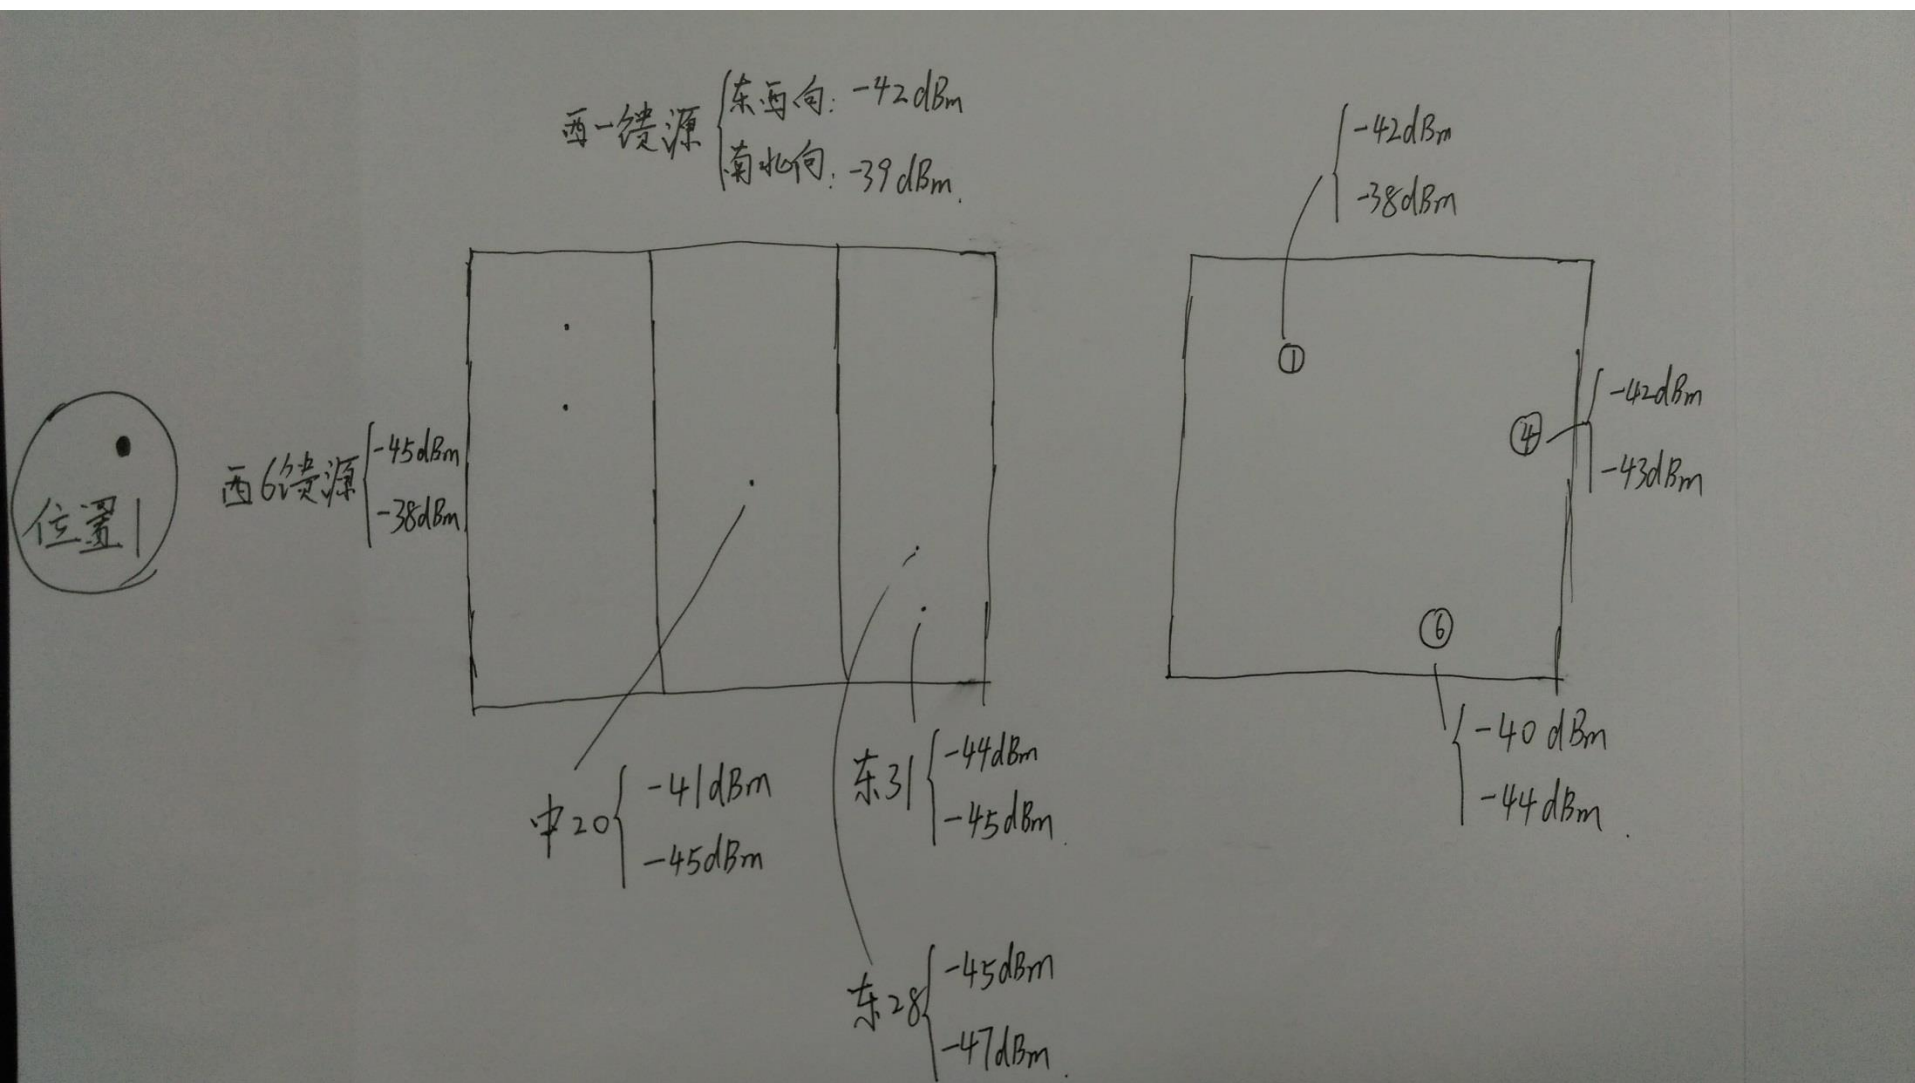 西一馈源
东西向: -42dBm
南北向: -39dBm.
-42dBm
-38dBm
①
位置1
西6馈源
-45dBm
-38dBm
④
-42dBm
-43dBm
⑥
-40dBm
-44dBm.
中20
-41dBm
-45dBm
东31
-44dBm
-45dBm.
东28
-45dBm
-47dBm.